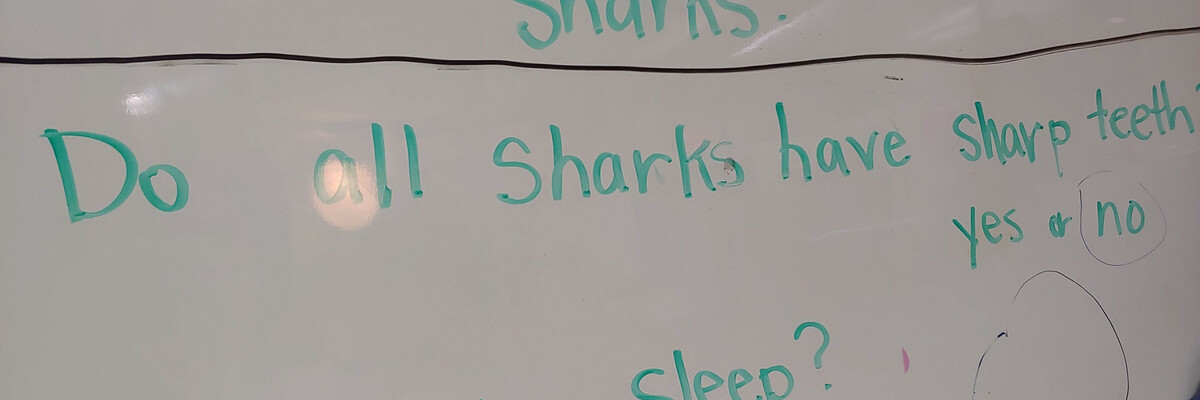 Sharks.
Do all Sharks have sharp teeth?
yes or no
sleep?